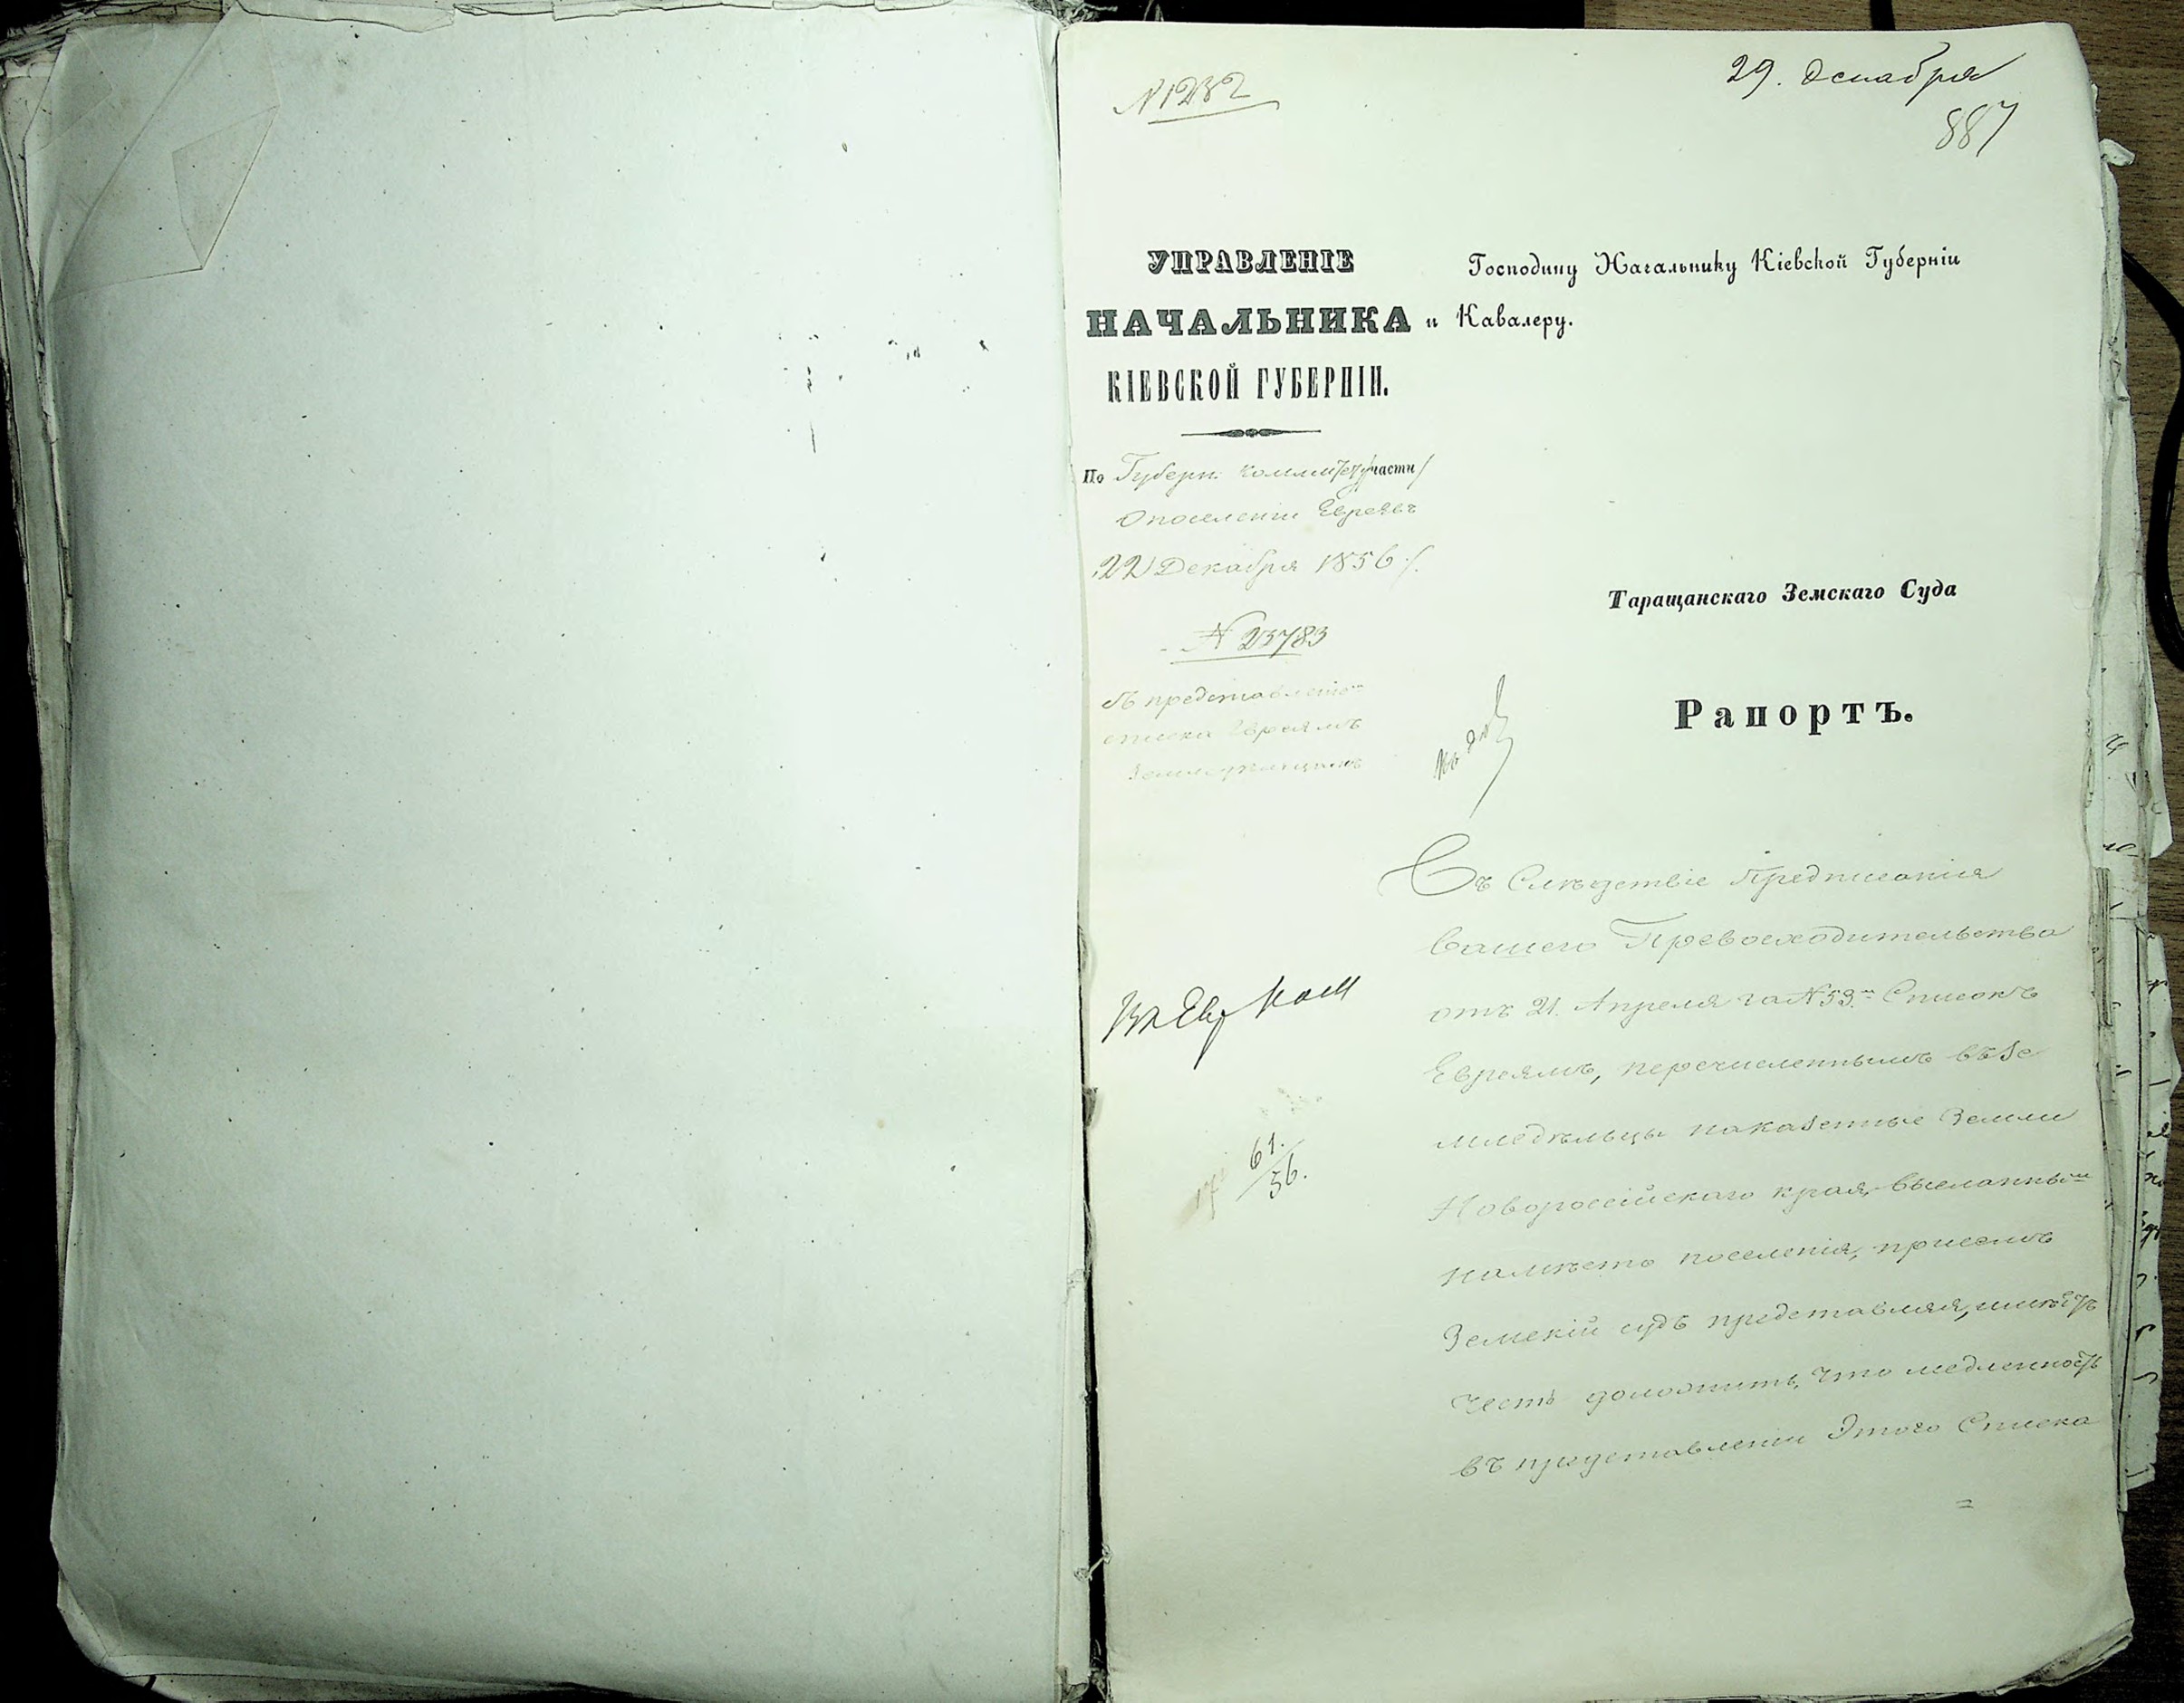 № 1282
29. Декабря
887
УПРАВЛЕНІЕ
НАЧАЛЬНИКА
КІЕВСКОЙ ГУБЕРНІИ.
По Губерн. Коммитету части
О поселеніи Евреевъ
22 Декабря 1856 г.
№ 23783
Съ представленіемъ
списка Евреямъ
Господину Начальнику Кіевской Губерніи
и Кавалеру.
Таращанскаго Земскаго Суда
Рапортъ.
Въ Слѣдствіе Предписанія
Вашего Превосходительства
отъ 21. Апреля за № 53. Списокъ
Евреямъ, перечисленнымъ въ зе
мледѣльцы на казенные Земли
Новороссійскаго края, высланнымъ
на мѣсто поселенія, при семъ
Земскій судъ представляя, имѣетъ
честь доложить, что медленность
въ представленіи Этого Списка
=
61.
56.